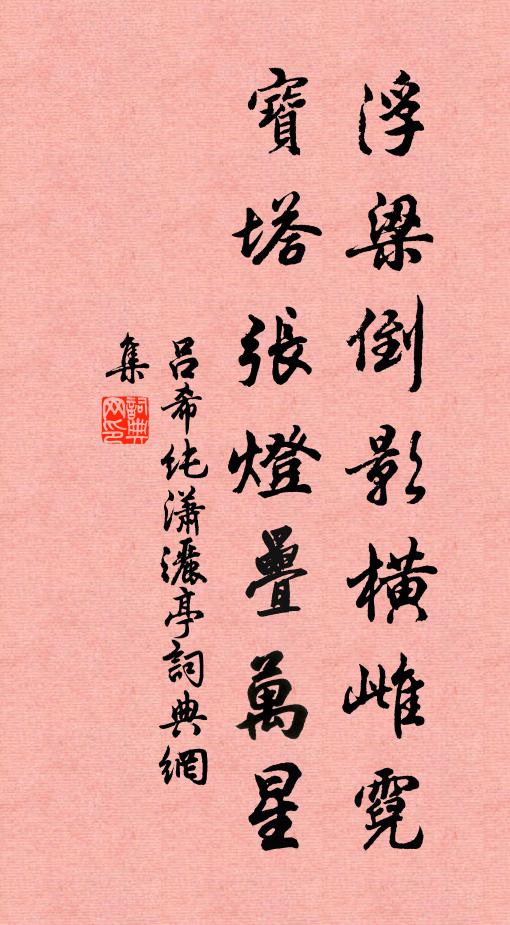 浮梁倒影橫雌霓
寶塔張燈疊萬星
呂希純瀟灑亭詞典網
集
詞典网印